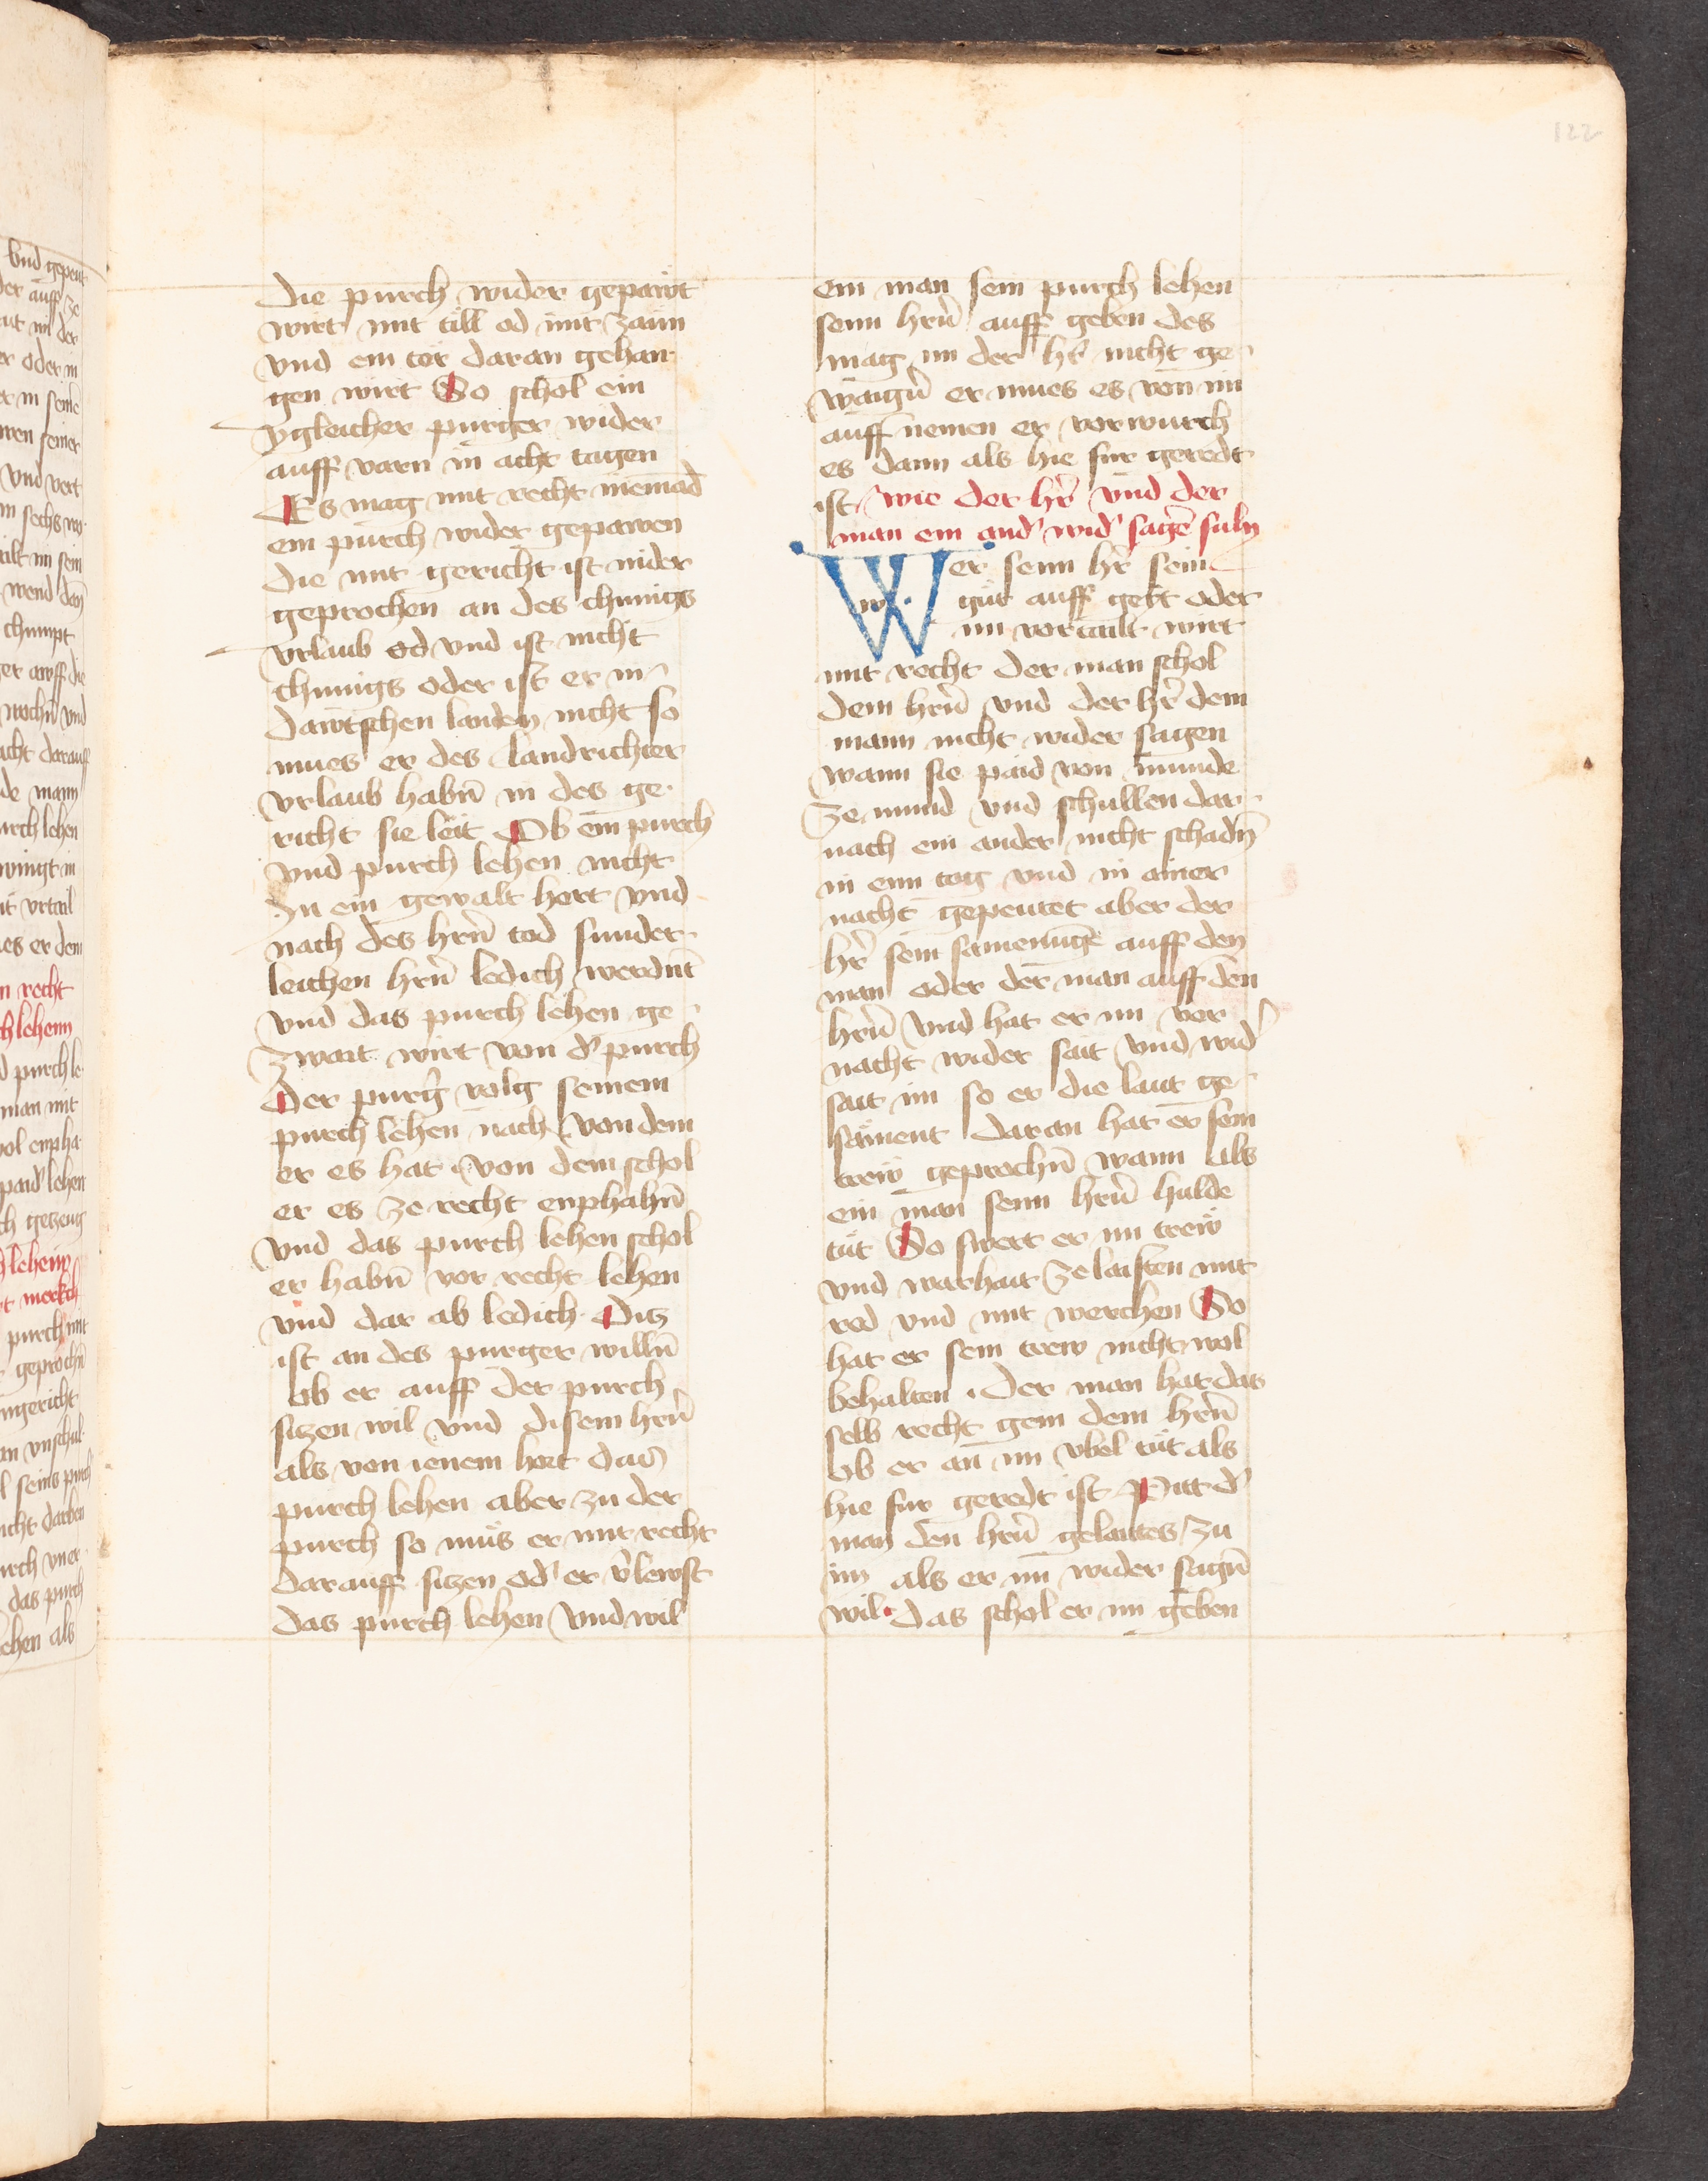 122
die purch wider gepawt
wirt mit till od mit zaun
vnd ein tor daran gehan
gen wirt So schol ein
ygleicher purger wider
auff varn in acht tagen
Es mag mit recht niemād
ein purch wider gepawen
die mit gericht ist nider
geprochen an des chunigs
vrlaub od vnd ist nicht
chunigs oder ist er in
dawtschen landen nicht so
mues er des landrichter
vrlaub habn̄ in des ge
richt sie leit Ob ein purch
vnd purch lehen nicht
In ein gewalt hort vnd
nach des hrn̄ tod sunder
leichen hrn̄ ledich werdnt
vnd das purch lehen ge
zwait wirt von d' purch
Der purg' volg seinem
purch lehen nach von dem
er es hat von dem schol
er es ze recht enphahn̄
vnd das purch lehen schol
er habn̄ vor recht lehen
vnd dar ab ledich Dis
ist an des purger willn̄
ob er auff der purch
siczen wil vnd disem hrn̄
als von ienem hort das
purch lehen aber zu der
purch so mus er mit recht
darauff siczen od' er v'lewst
das purch lehen vnd wil
ein man sein purch lehen
seim hrn̄ auff geben des
mag im der hr̄ nicht ge
waign̄ er mues es von im
auff nemen er vorwurch
es dann als hie fur geredt
ist wie der hr̄ vnd der
man ein and' wid' sagē suln
Wer seim hr̄ sein
gut auff gebt oder
im vortailt wirt
mit recht der man schol
dem hrn̄ vnd der hr̄ dem
mann nicht wider sagen
wann sie paid von munde
ze mund vnd schullen dar
nach ein ander nicht schadn̄
in eim tag vnd in ainer
nacht gepeutet aber der
hr̄ sein samenūge auff den
man oder der man auff den
hrn̄ vnd hat er im vor
nacht wider sait vnd wid'
sait im so er die laut ge
sament daran hat er sein
trew geprochn̄ wann als
ein man seim hrn̄ hulde
tut So swert er im trew
vnd warhait ze laisten mit
red vnd mit werchen So
hat er sein trew nicht wol
behalten Der man hat das
selb recht gein dem hrn̄
ob er an im vbel tut als
hie fur geredt ist Pitt d'
man den hrn̄ gelaites zu
im als er im wider sagn̄
wil das schol er im geben